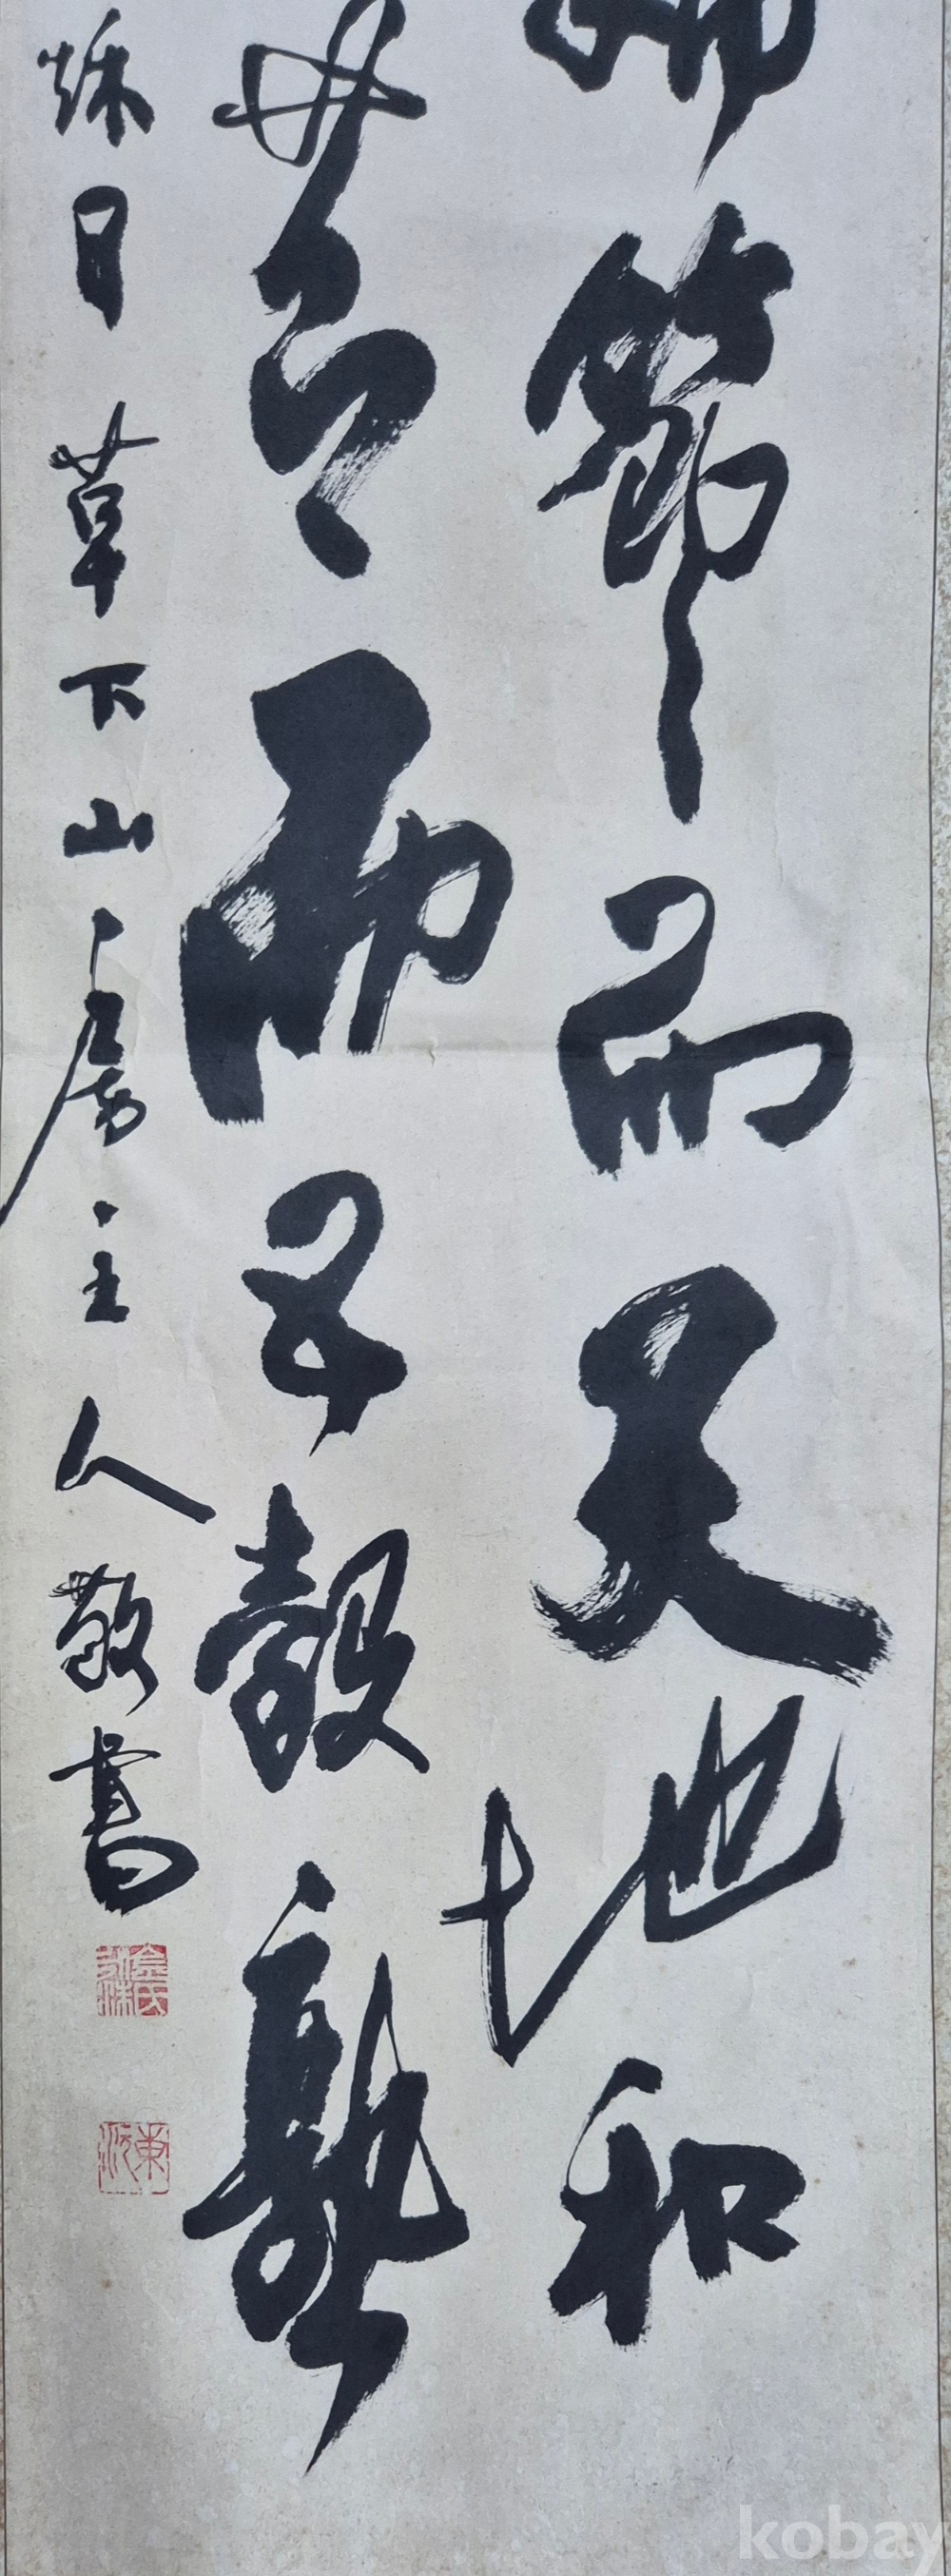 節而天地和
而五穀熟
秌日草下山房主人敬書
kobay